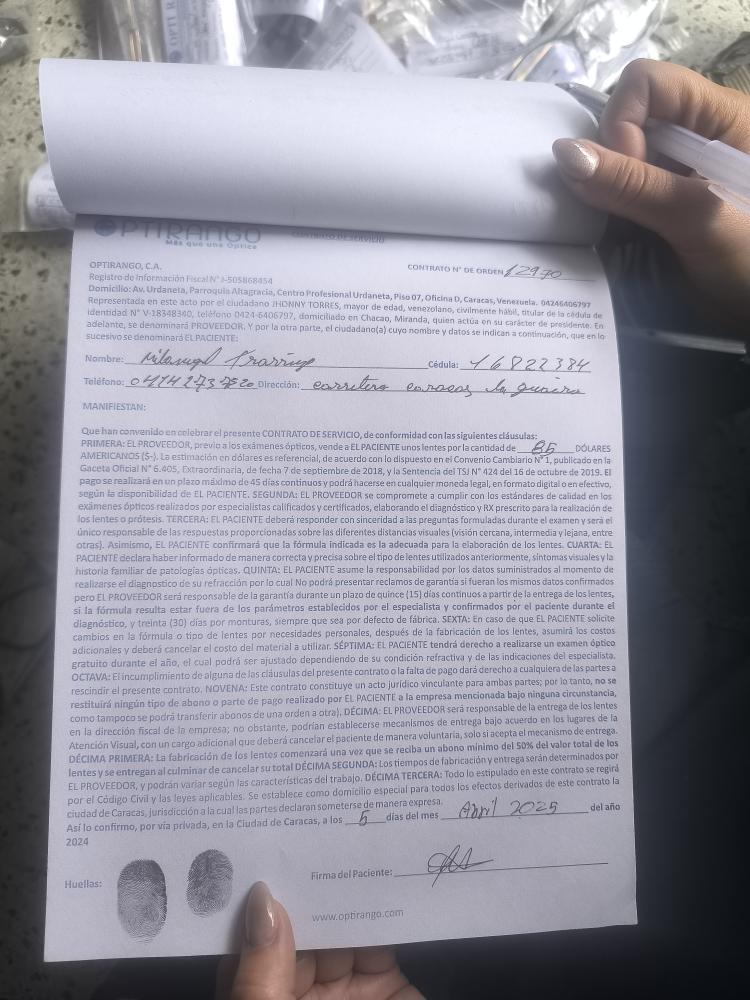 OPTIRANGO
Más que una Óptica
CONTRATO DE SERVICIO
OPTIRANGO, C.A.
CONTRATO N° DE ORDEN 12970
Registro de Información Fiscal N° J-505868454
Domicilio: Av. Urdaneta, Parroquia Altagracia, Centro Profesional Urdaneta, Piso 07, Oficina D, Caracas, Venezuela. 04246406797
Representada en este acto por el ciudadano JHONNY TORRES, mayor de edad, venezolano, civilmente hábil, titular de la cédula de
identidad N° V-18348340, teléfono 0424-6406797, domiciliado en Chacao, Miranda, quien actúa en su carácter de presidente. En
adelante, se denominará PROVEEDOR. Y por la otra parte, el ciudadano(a) cuyo nombre y datos se indican a continuación, que en lo
sucesivo se denominará EL PACIENTE:
Nombre: Cédula: 16822384
Teléfono: Dirección: carretera caracas la guaira
MANIFIESTAN:
Que han convenido en celebrar el presente CONTRATO DE SERVICIO, de conformidad con las siguientes cláusulas:
PRIMERA: EL PROVEEDOR, previo a los exámenes ópticos, vende a EL PACIENTE unos lentes por la cantidad de 85 DÓLARES
AMERICANOS ($-). La estimación en dólares es referencial, de acuerdo con lo dispuesto en el Convenio Cambiario N° 1, publicado en la
Gaceta Oficial N° 6.405, Extraordinaria, de fecha 7 de septiembre de 2018, y la Sentencia del TSJ N° 424 del 16 de octubre de 2019. El
pago se realizará en un plazo máximo de 45 días continuos y podrá hacerse en cualquier moneda legal, en formato digital o en efectivo,
según la disponibilidad de EL PACIENTE. SEGUNDA: EL PROVEEDOR se compromete a cumplir con los estándares de calidad en los
exámenes ópticos realizados por especialistas calificados y certificados, elaborando el diagnóstico y RX prescrito para la realización de
los lentes o prótesis. TERCERA: EL PACIENTE deberá responder con sinceridad a las preguntas formuladas durante el examen y será el
único responsable de las respuestas proporcionadas sobre las diferentes distancias visuales (visión cercana, intermedia y lejana, entre
otras). Asimismo, EL PACIENTE confirmará que la fórmula indicada es la adecuada para la elaboración de los lentes. CUARTA: EL
PACIENTE declara haber informado de manera correcta y precisa sobre el tipo de lentes utilizados anteriormente, síntomas visuales y la
historia familiar de patologías ópticas. QUINTA: EL PACIENTE asume la responsabilidad por los datos suministrados al momento de
realizarse el diagnostico de su refracción por lo cual No podrá presentar reclamos de garantía si fueran los mismos datos confirmados
pero EL PROVEEDOR será responsable de la garantía durante un plazo de quince (15) días continuos a partir de la entrega de los lentes,
si la fórmula resulta estar fuera de los parámetros establecidos por el especialista y confirmados por el paciente durante el
diagnóstico, y treinta (30) días por monturas, siempre que sea por defecto de fábrica. SEXTA: En caso de que EL PACIENTE solicite
cambios en la fórmula o tipo de lentes por necesidades personales, después de la fabricación de los lentes, asumirá los costos
adicionales y deberá cancelar el costo del material a utilizar. SÉPTIMA: EL PACIENTE tendrá derecho a realizarse un examen óptico
gratuito durante el año, el cual podrá ser ajustado dependiendo de su condición refractiva y de las indicaciones del especialista.
OCTAVA: El incumplimiento de alguna de las cláusulas del presente contrato o la falta de pago dará derecho a cualquiera de las partes a
rescindir el presente contrato. NOVENA: Este contrato constituye un acto jurídico vinculante para ambas partes; por lo tanto, no se
restituirá ningún tipo de abono o parte de pago realizado por EL PACIENTE a la empresa mencionada bajo ninguna circunstancia,
como tampoco se podrá transferir abonos de una orden a otra). DÉCIMA: EL PROVEEDOR será responsable de la entrega de los lentes
en la dirección fiscal de la empresa; no obstante, podrían establecerse mecanismos de entrega bajo acuerdo en los lugares de la
Atención Visual, con un cargo adicional que deberá cancelar el paciente de manera voluntaria, solo si acepta el mecanismo de entrega.
DÉCIMA PRIMERA: La fabricación de los lentes comenzará una vez que se reciba un abono mínimo del 50% del valor total de los
lentes y se entregan al culminar de cancelar su total DÉCIMA SEGUNDA: Los tiempos de fabricación y entrega serán determinados por
EL PROVEEDOR, y podrán variar según las características del trabajo. DÉCIMA TERCERA: Todo lo estipulado en este contrato se regirá
por el Código Civil y las leyes aplicables. Se establece como domicilio especial para todos los efectos derivados de este contrato la
ciudad de Caracas, jurisdicción a la cual las partes declaran someterse de manera expresa.
Así lo confirmo, por vía privada, en la Ciudad de Caracas, a los 5 días del mes Abril 2025 del año
2024
Huellas:
Firma del Paciente:
www.optirango.com